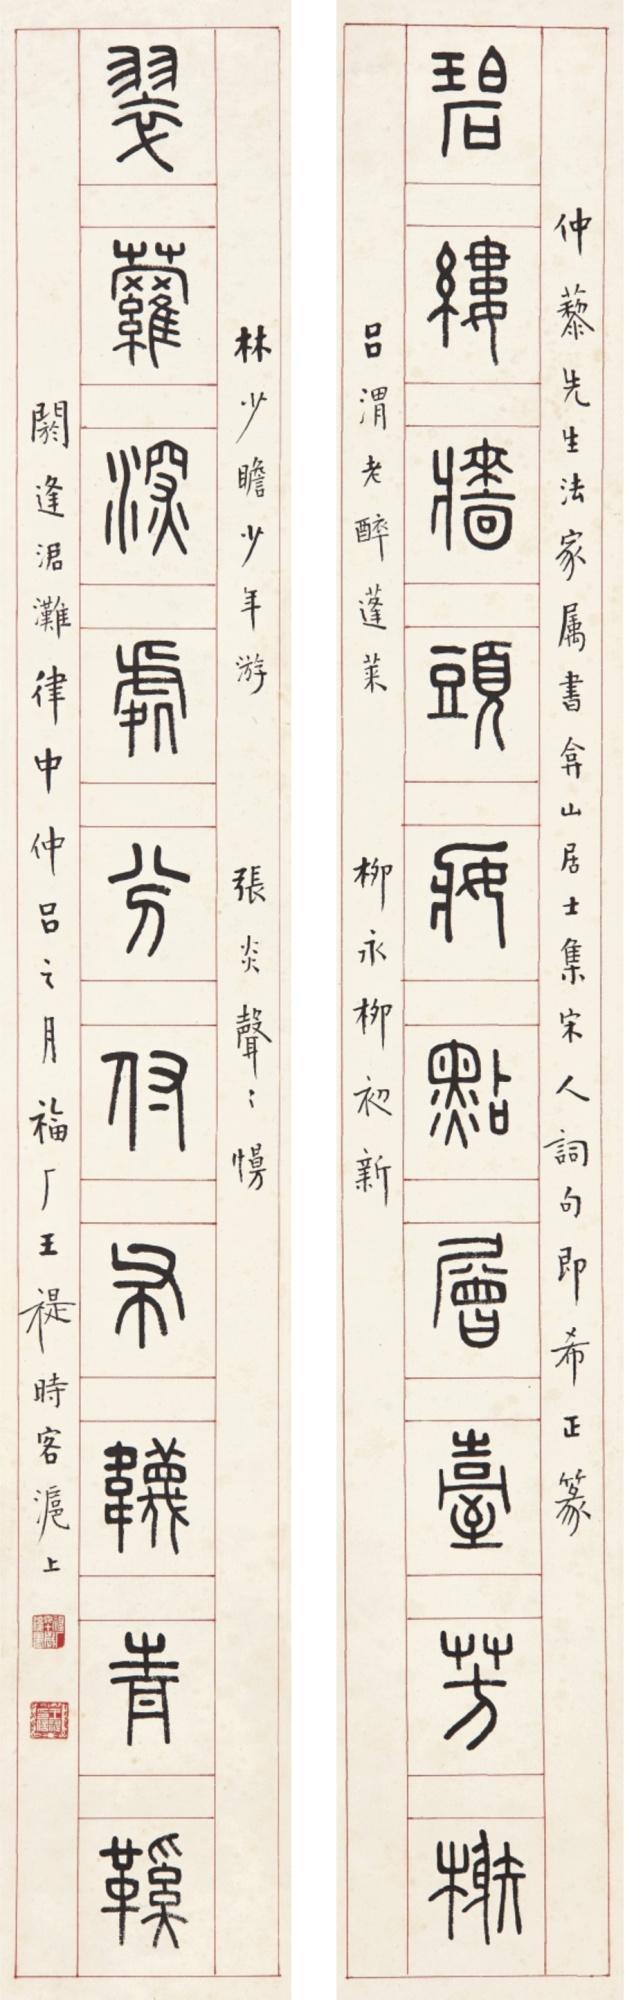 仲藜先生法家属書弇山居士集宋人詞句即希正篆
碧縷牆頭妝點層臺芳榭
呂渭老醉蓬萊　柳永柳初新
林少瞻少年游　張炎聲〻慢
翠蘿深處分付布韈青鞵
閼逢涒灘律中仲呂之月福厂王禔時客滬上